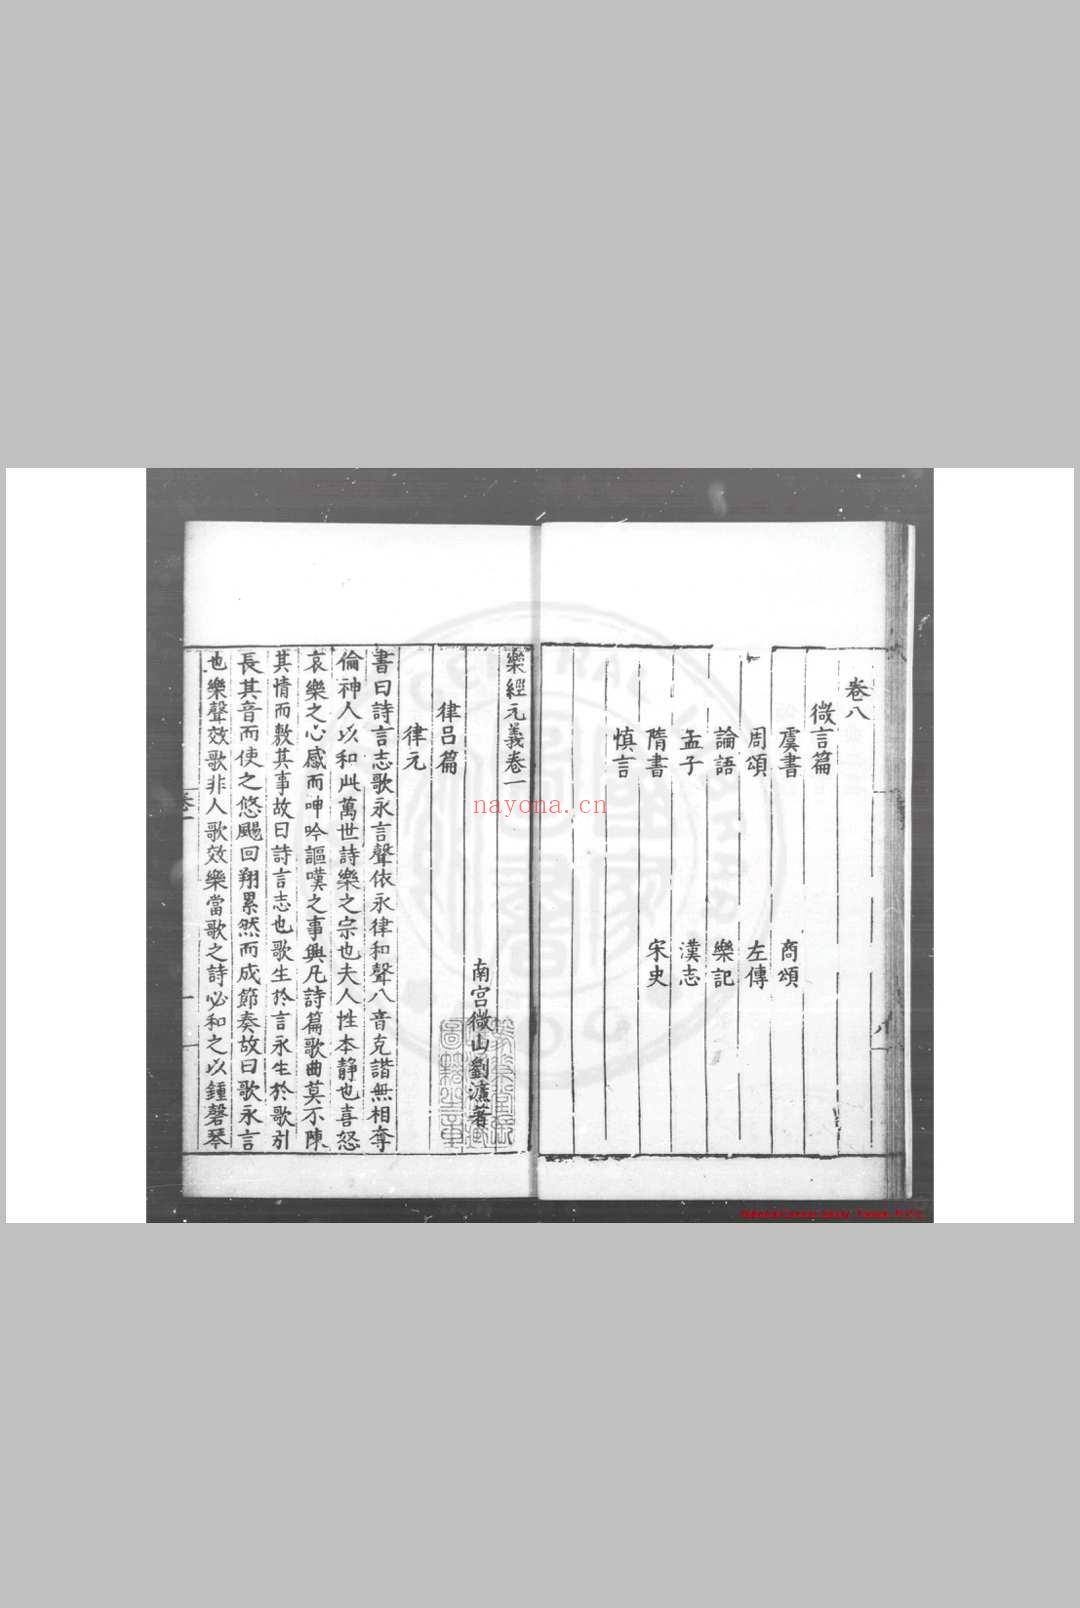 卷八
微言篇
虞書 商頌
周頌 左傳
論語 樂記
孟子 漢志
隋書 宋史
慎言
八
樂經元義卷一
南宮微山劉濂著
律呂篇
律元
書曰詩言志歌永言聲依永律和聲八音克諧無相奪
倫神人以和此萬世詩樂之宗也夫人性本靜也喜怒
哀樂之心感而呻吟謳嘆之事興凡詩篇歌曲莫不陳
其情而敷其事故曰詩言志也歌生於言永生於歌引
長其音而使之悠颺回翔累然而成節奏故曰歌永言
也樂聲效歌非人歌效樂當歌之詩必和之以鍾磬琴
卷一
一
nayona.cn